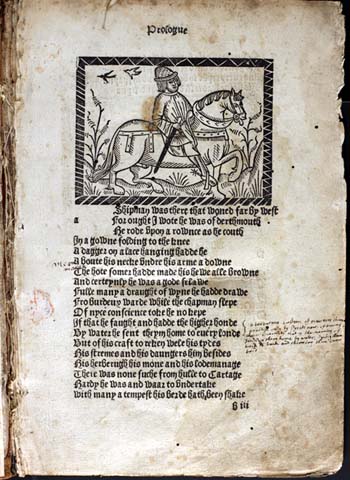 Prologue
Shipman was there that woned far by west
a For ought I wote he was of derthmouth
He rode vpon a rownce as he couth
In a gowne folding to the knee
A dagger on a lace hanging hadde he
A boute his necke vnder his arme a downe
The hote somer hadde made his hewe alle browne
And certeynly he was a gode felawe
Fulle many a draught of wyne he hadde drawe
Fro burdeux warde while the chapman slepe
Of nyce conscience toke he no kepe
If that he faught and hadde the higher honde
By water he sent theym home to euery londe
But of his craft to reken wele his tydes
His stremes and his daungers him besides
His herbergh his mone and his lodemanage
There was none suche from hulle to Cartage
Hardy he was and waar to vndertake
With many a tempest his berde hath been shake
b iii